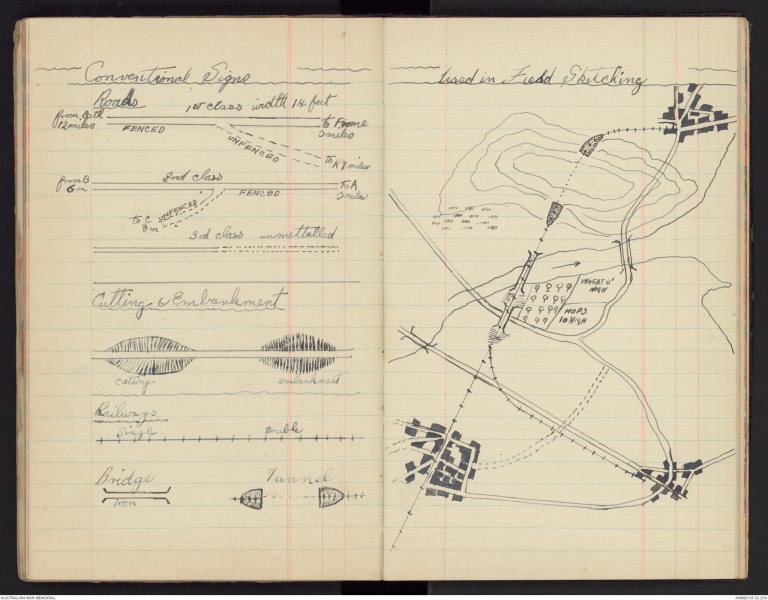 Conventional Signs
Roads
1st class width 14 feet
from Bath
12 miles
FENCED
to Frome
3 miles
UNFENCED
to K 9 miles
from B
6 m
2nd class
FENCED
to A
to C
8 m
UNFENCED
3rd class unmettalled
Cutting & Embankment
cutting
embankment
Railways
Single
Double
Bridge
Iron
Tunnel
Used in Field Sketching
WHEAT 4'
HIGH
HOPS
10 HIGH
AUSTRALIAN WAR MEMORIAL